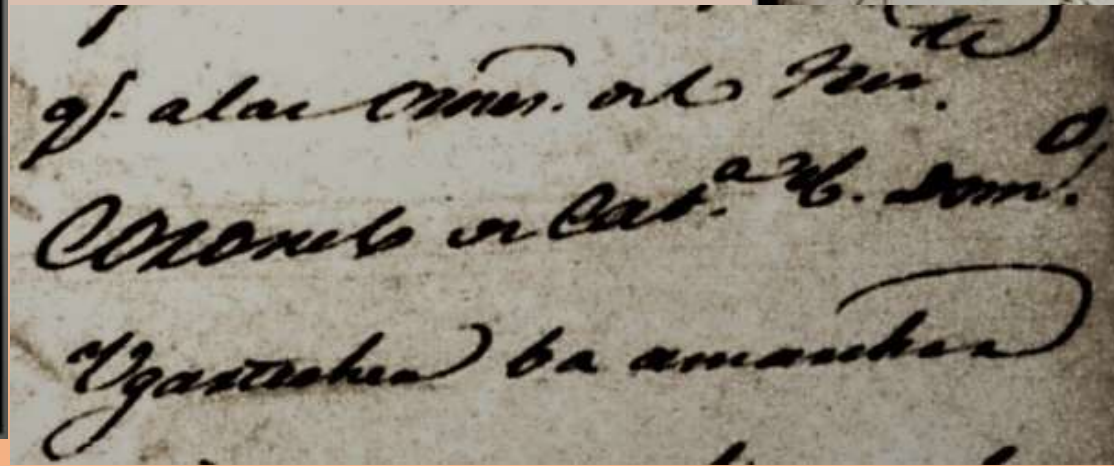 q.e a las ordnes. del Ten.te
Coronel de Cab.a D. Dom.o
Ugartechea ba a marchar